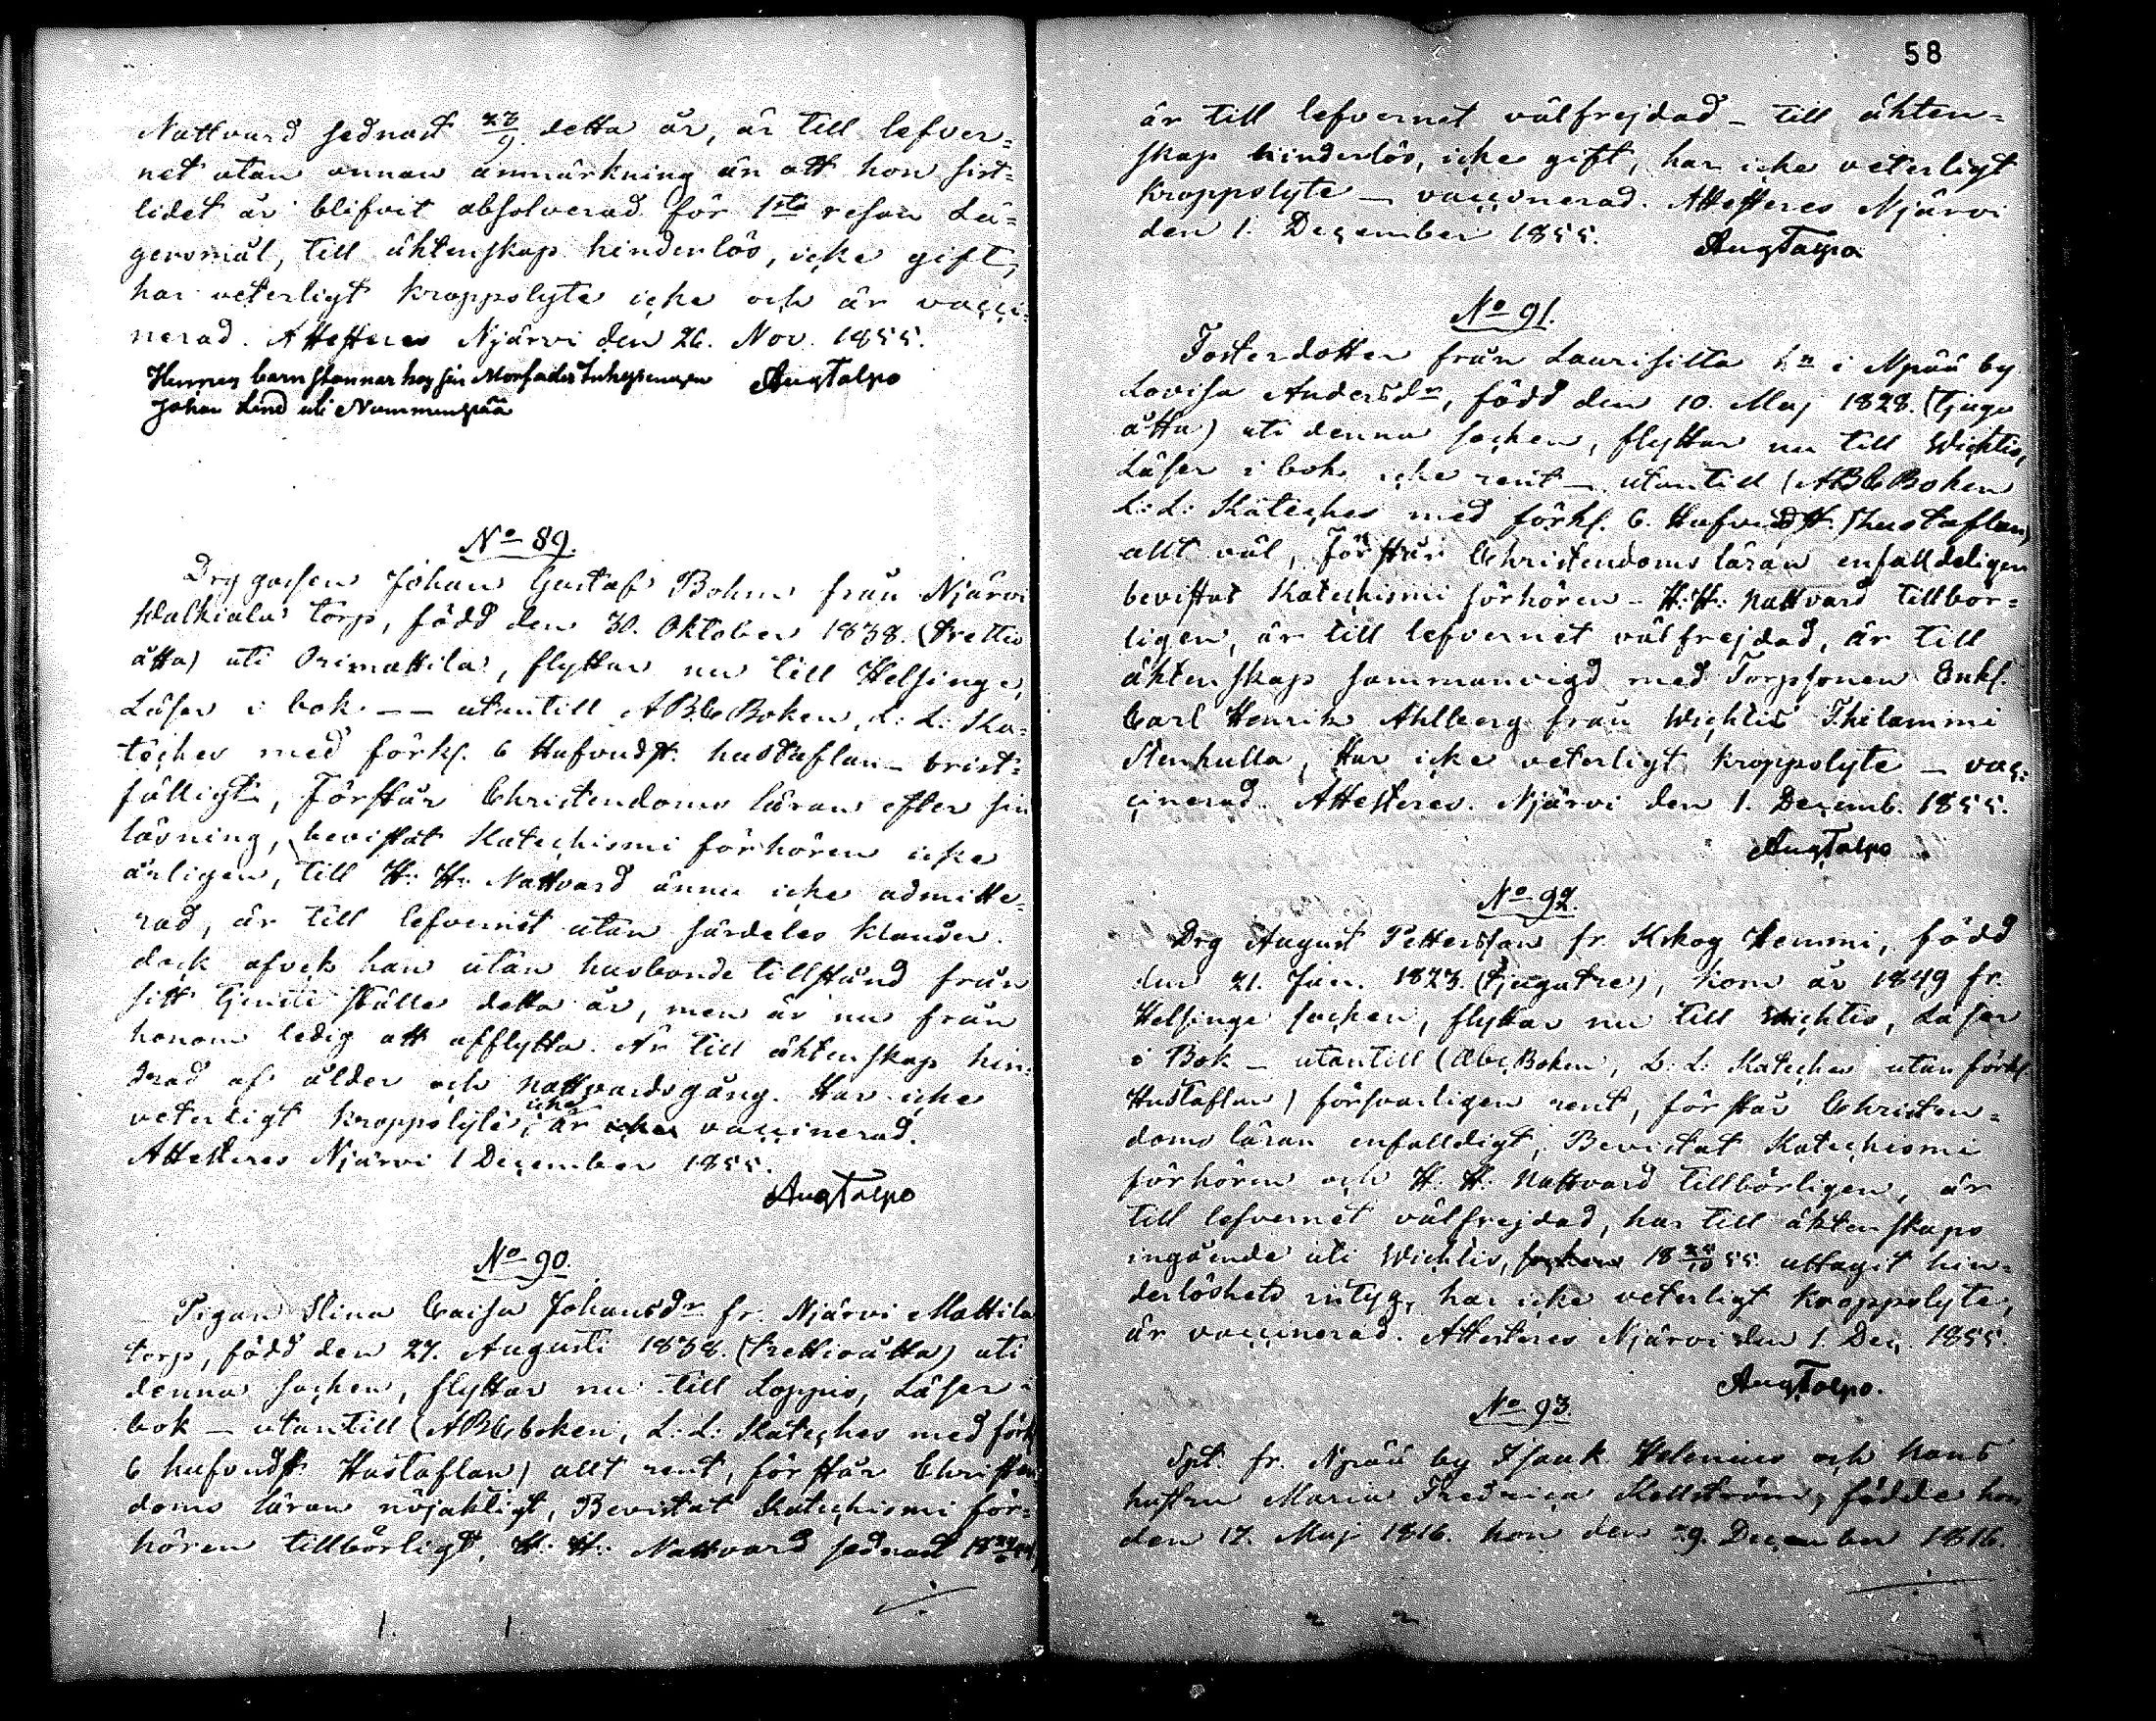 Nattvard sednast 23/9 detta år, är till lefver=
net utan annan anmärkning än att hon sist=
lidet år blifvit absolverad för 1sta resan Lä=
gersmål, till äktenskap hinderlös, icke gift,
har veterligt kroppslyte icke och är vacci=
nerad. Attesteras Njärvi den 26. Nov. 1855.
Hennes barn stannar hos sin Morfader Inhysingen AugTalpo
Johan Lind uti Nummenpää
No 89.
Drg gossen Johan Gustaf Bohm från Njärvi
Walkiala torp, född den 30. Oktober 1838. (trettio
åtta) uti Orimattila, flyttar nu till Helsinge,
Läser i bok -- utantill ABCBoken, L: L: Ka=
teches med förkl. 6 Hufvudst. hustaflan - brist=
fälligt, Förstår Christendoms läran efter sin
läsning, bevistat Katechismi förhören icke
årligen, till H: H: Nattvard ännu icke admitte=
rad, är till lefvernet utan särdeles klander.
dock afvek han utan husbonde tillstånd från
sitt tjenste ställe detta år, men är nu från
honom ledig att afflytta. Är till äktenskap hin=
drad af ålder och nattvardsgång. Har icke
veterligt kroppslyte, är icke vaccinerad.
Attesteras Njärvi 1 December 1855.
AugTalpo
No 90.
Pigan Stina Caisa Johansdr fr. Njärvi Mattila
torp, född den 27. Augusti 1838. (trettioåtta) uti
denna socken, flyttar nu till Loppis, Läser i
bok - utantill (ABCboken, L: L: Kateches med förkl
6 hufvudst. Hustaflan) allt rent, förstår Christen
doms läran nöjaktligt, Bevistat Katechismi för=
hören tillbörligt, H: H: Nattvard sednast
58
är till lefvernet välfrejdad - till äkten=
skap hinderlös, icke gift, har icke veterligt
kroppslyte - vaccinerad. Attesteras Njärvi
den 1. December 1855.
AugTalpo
No 91.
Fosterdotter från Laurisilta hn i Npää by
Lovisa Andersdr, född den 10. Maj 1828. (tjugu
åtta) uti denna socken, flyttar nu till Wichtis,
Läser i bok icke rent - utantill (ABCBoken
L: L: Kateches med förkl. 6. Hufvudst. hustaflan)
allt väl, Förstår Christendoms läran enfalldeligen
bevistat Katechismi förhören - H: H: Nattvard tillbör=
ligen, är till lefvernet välfrejdad, är till
äktenskap sammanvigd med Torpsonen Enkl.
Carl Henrik Ahlberg från Wichtis Ihilammi
Stenkulla, Har icke veterligt kroppslyte - vac=
cinerad. Attesteras. Njärvi den 1. Decemb. 1855.
AugTalpo
No 92.
Drg August Pettersson fr. Kskog Hemmi, född
den 21. Jan. 1823. (tjugutre), kom år 1849 fr.
Helsinge socken, flyttar nu till Wichtis, Läser
i Bok - utantill (Abc Boken, L: L: Kateches utan förkl
Hustaflan) försvarligen rent, förstår Christen=
doms läran enfalldigt, Bevistat Katechismi
förhören och H. H. Nattvard tillbörligen, är
till lefvernet välfrejdad, har till äktenskaps
ingående uti Wichtis, socken 18 55. uttagit hin=
derlöshets intyg, har icke veterligt kroppslyte,
är vaccinerad. Attesteras Njärvi den 1. Dec. 1855.
AugTalpo.
No 93.
fr. Npää by Isaak Helenius och hans
hustru Maria Fredrica Kellström, födde han
den 17. Maj 1816. hon den 29. December 1816.